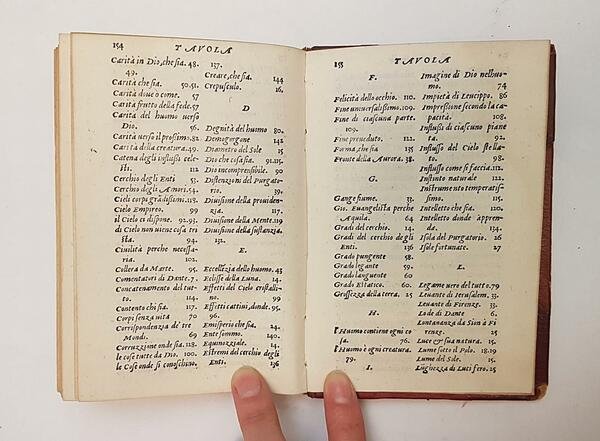 154
TAVOLA
Carità in Dio, che sia. 48.
49.
Carità che sia. 50.51
Carità doue o come. 57
Carità frutto della fede. 57
Carità del huomo verso
Dio. 56
Carità verso il prossimo. 82
Carità della creatura. 49.
Catena degli influssi cele-
sti. 112
Cerchio degli Enti. 53
Cerchio degli Amori. 54.
Cieli corpi grādissimi. 118.
Cielo Empireo. 99
il Cielo ci dispone. 92.93
di Cielo non viene cosa tri
sta. 94.
Ciuilità perche necessa-
ria. 102.
Collera da Marte. 95.
Comentatori di Dante. 7.
Concatenamento del tut-
to. 114.
Contento chi sia. 117.
Corpi senza vita 70
Corrispondenza de' tre
Mondi. 69
Corruzzione onde sia. 118.
le cose tutte da Dio. 100.
le Cose onde si conoschino.
137.
Creare, che sia. 144
Crepusculo. 16.
D
Degnità del huomo 80.
Demogorgone 142
Diametro del Sole 15
Dio che cosa sia. 91.115.
Dio incomprensibile. 90
Distenzioni del Purgato-
rio. 39.
Diuisione della prouiden-
zia. 117.
Diuisione della Mente. 119
Diuisione della sustanzia.
132.
E.
Eccellēzia dello huomo. 43
Eclisse della Luna. 14.
Effetti del Cielo cristalli-
no. 99
Effetti cattiui, donde. 95.
96.
Emisperio che sia. 24.
Ente sommo. 140.
Equinozziale. 14.
Estremi del cerchio degli
Enti. 136
155
TAVOLA
F.
Felicità dello occhio. 110.
Fine uniuersalissimo. 109.
Fine di ciascuna parte.
109.
Fine preueduto. 122.
Forma, che sia 135
Fronte della Aurora. 38.
G.
Gange fiume. 33.
Gio. Euangelista perche
Aquila. 64
Gradi del cerchio. 14.
Gradi del cerchio degli
Enti. 136
Grado pungente 58
Grado legante 59
Grado languente 60
Grado Estatico. 60.
Grossezza della terra. 25
H.
l'Huomo contiene ogni co
sa. 76.
l'Huomo è ogni creatura.
79.
I.
Imagine di Dio nelhuo-
mo. 74
Impietà di Leucippo. 86
Impressione secondo la ca-
pacità. 108.
Influssi di ciascuno piane
ta. 92.
Influsso del Cielo stella-
to. 98.
Influsso come si faccia. 112.
Instinto naturale 121.
Instrumento temperatis-
simo. 115.
Intelletto che sia. 120.
Intelletto donde apren-
da. 134.
Isola del Purgatorio. 26
Isole fortunate. 27
L.
Legame uero del tutto. 79
Leuante di Jerusalem. 33.
Leuante di Firenze. 33.
Lode di Dante 6.
Lontananza da Sion à Fi
renze. 25
Luce & sua natura. 15.
Lume sotto il Polo. 18.19
Lume del Sole. 15.
Lūghezza di Lucifero. 25